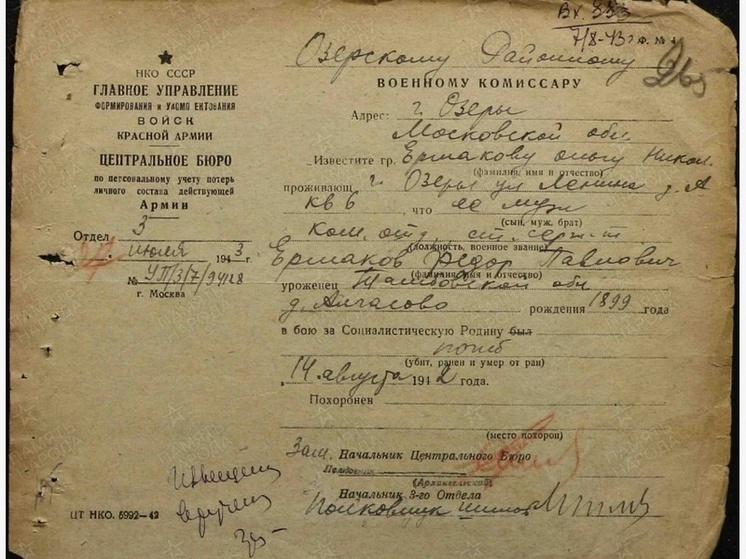 Вх. 333
7/8-43 г. Ф. № 4
265
Озерскому Районному
ВОЕННОМУ КОМИССАРУ
НКО СССР
ГЛАВНОЕ УПРАВЛЕНИЕ
ФОРМИРОВАНИЯ и УКОМПЛЕКТОВАНИЯ
ВОЙСК
КРАСНОЙ АРМИИ
ЦЕНТРАЛЬНОЕ БЮРО
по персональному учету потерь
личного состава действующей
Армии
Отдел 3
июля 1943
№ УП/3/7/94128
г. Москва
Адрес: г. Озеры
Московской обл
Известите гр. Ермакову Ольгу Никол.
(фамилия, имя и отчество)
проживающ. г. Озеры ул Ленина д. А
кв 6 что ее муж
(сын, муж, брат)
ком. отд. ст. серж-т
(должность, военное звание)
Ермаков Федор Павлович
(фамилия, имя и отчество)
уроженец Тамбовской обл
д. Алгасово рождения 1899 года
в бою за Социалистическую Родину был
погиб
(убит, ранен и умер от ран)
14 августа 1942 года.
Похоронен
(место похорон)
Зам. Начальник Центрального Бюро
Полковник
(Архангельский)
Начальник 3-го Отдела
Полковник
ЦТ НКО. 5992-42
Извещение
вручено